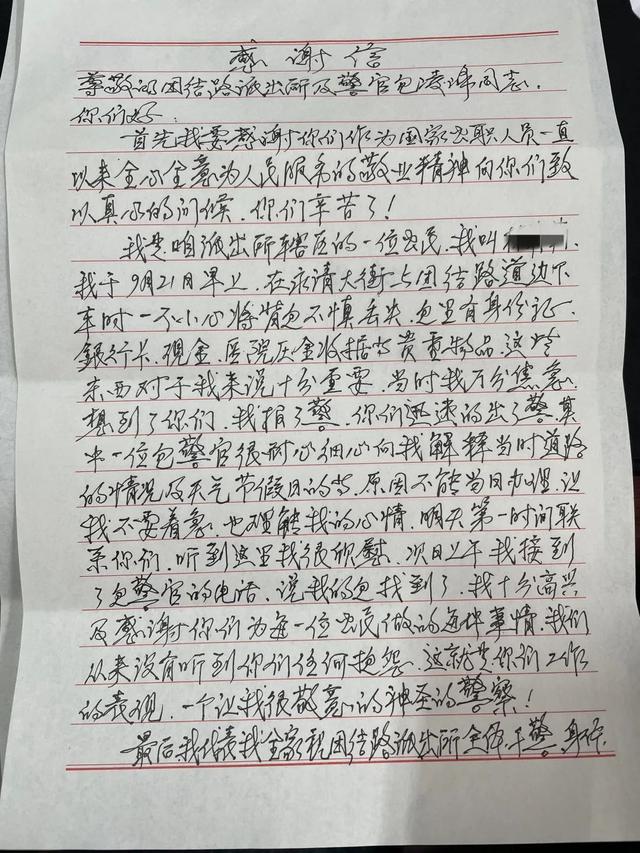 感谢信
尊敬的团结路派出所及警官包凌锋同志.
你们好:
首先我要感谢你们作为国家公职人员一直
以来全心全意为人民服务的敬业精神向你们致
以真心的问候.你们辛苦了!
我是咱派出所辖区的一位公民.我叫
我于9月21日早上.在永请大街与团结路道边下
车时一不小心将背包不慎丢失.包里有身份证.
銀行卡.现金.医院压金收据等贵重物品.这些
东西对于我来说十分重要.当时我万分焦急.
想到了你们.我报了警.你们迅速的出了警其
中一位包警官很耐心细心向我解释当时道路
的情况及天气节假日的等.原因不能当日办理.让
我不要着急也理解我的心情.明天第一时间联
系你们.听到这里我很欣慰.次日上午我接到
了包警官的电话.说我的包找到了.我十分高兴
及感谢你们为每一位公民做的每件事情.我们
从来没有听到你们任何抱怨.这就是你们工作
的表现.一个让我很敬意的神圣的警察!
最后我代表我全家祝团结路派出所全体干警.身体.